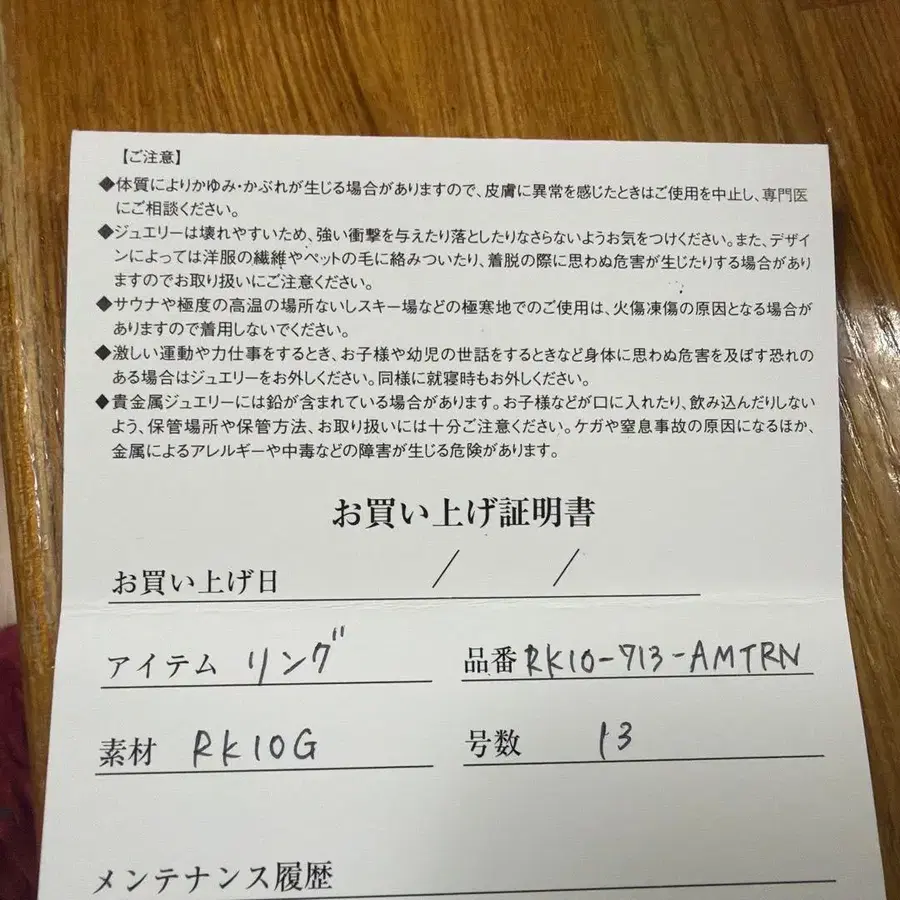 【ご注意】
◆体質によりかゆみ・かぶれが生じる場合がありますので、皮膚に異常を感じたときはご使用を中止し、専門医
にご相談ください。
◆ジュエリーは壊れやすいため、強い衝撃を与えたり落としたりなさらないようお気をつけください。また、デザイ
ンによっては洋服の繊維やペットの毛に絡みついたり、着脱の際に思わぬ危害が生じたりする場合があり
ますのでお取り扱いにご注意ください。
◆サウナや極度の高温の場所ないしスキー場などの極寒地でのご使用は、火傷凍傷の原因となる場合が
ありますので着用しないでください。
◆激しい運動や力仕事をするとき、お子様や幼児の世話をするときなど身体に思わぬ危害を及ぼす恐れの
ある場合はジュエリーをお外しください。同様に就寝時もお外しください。
◆貴金属ジュエリーには鉛が含まれている場合があります。お子様などが口に入れたり、飲み込んだりしない
よう、保管場所や保管方法、お取り扱いには十分ご注意ください。ケガや窒息事故の原因になるほか、
金属によるアレルギーや中毒などの障害が生じる危険があります。
お買い上げ証明書
お買い上げ日 / /
アイテム リング 品番 RK10-713-AMTRN
素材 RK10G 号数 13
メンテナンス履歴